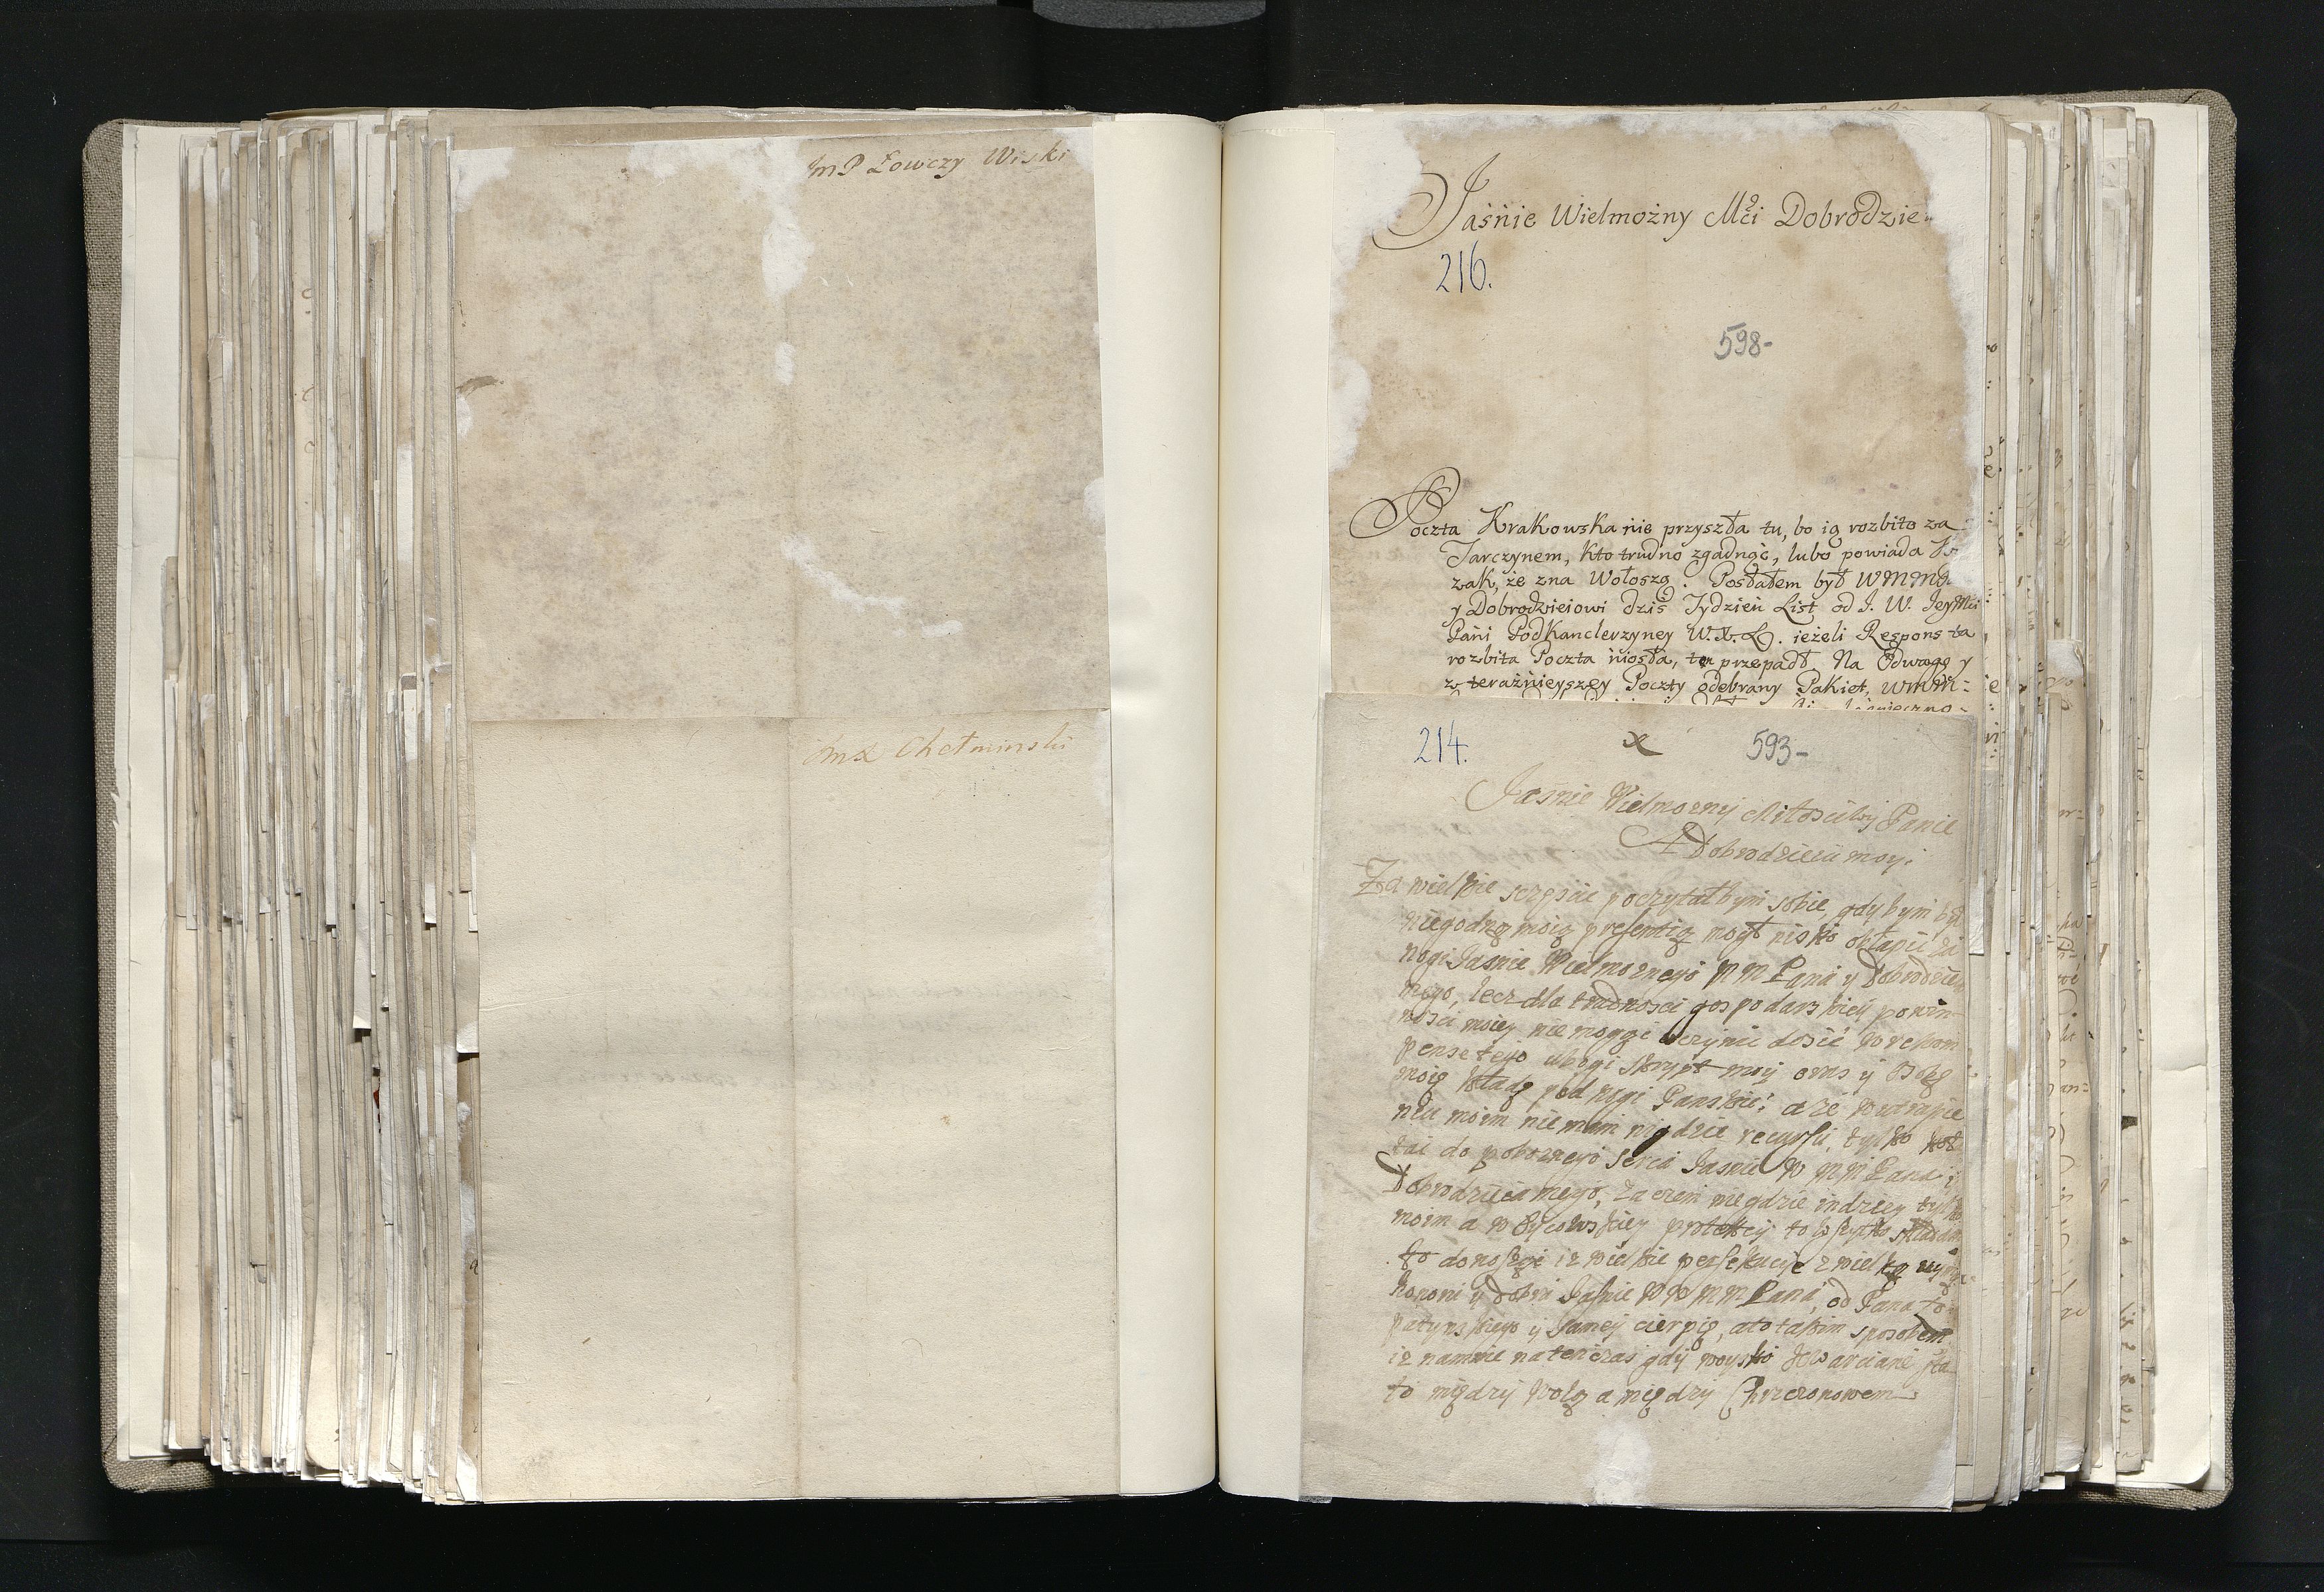 JmP Łowczy Wiski
JmX Chełminski
Jaśnie Wielmożny Mći Dobrodzie
216.
598-
Poczta Krakowska nie przyszła tu, bo ią rozbito za
Tarczynem, kto trudno zgadnąć, lubo powiada
zak, że zna Wołoszą. Posłałem był WMM
y Dobrodzieiowi dziś Tydzień List od J. W. JeyMci
Pani PodKanclerzyney W.X.L. ieżeli Respons ta
rozbita Poczta niosła, tu przepadł. Na Odwagę y
z teraźnieyszey Poczty odebrany Pakiet, WMM=
214.
x
593-
Jasnie Wielmozny Miłosciwy Panie
A Dobrodzieiu moy.
Za wielkie sczęscie poczytałbym sobie, gdybym
niegodną moią presentią mogł nisko obłapic za
nogi Jasnie Wielmoznego MM Pana y Dobrodzieia
mego, lecz dla trudnosci gospodarskiey powin
nosci moiey nie mogąc uczynic dosić w rekom
pense tego ubogi skrypt moy oras y Osobę
moię kładę pod nogi Panskie; a ze w utrapie
niu moim nie mam nigdzie recursu, tylko
tai do poboznego serca Jasnie W MM Pana;
Dobrodzieia mego, zaczem niegdzie indziey tylko
moim a w Oycowskiey protekcij to wszytko
to donosząc iz wielkie persekucye z wielką
honoru y dobr Jasnie W MM Pana, od Pana
y Samey cierpię, a to takim sposobem
iz namnie natenczas gdy woysko kwarciane sta
ło między Wolą a między Chrzczonowem